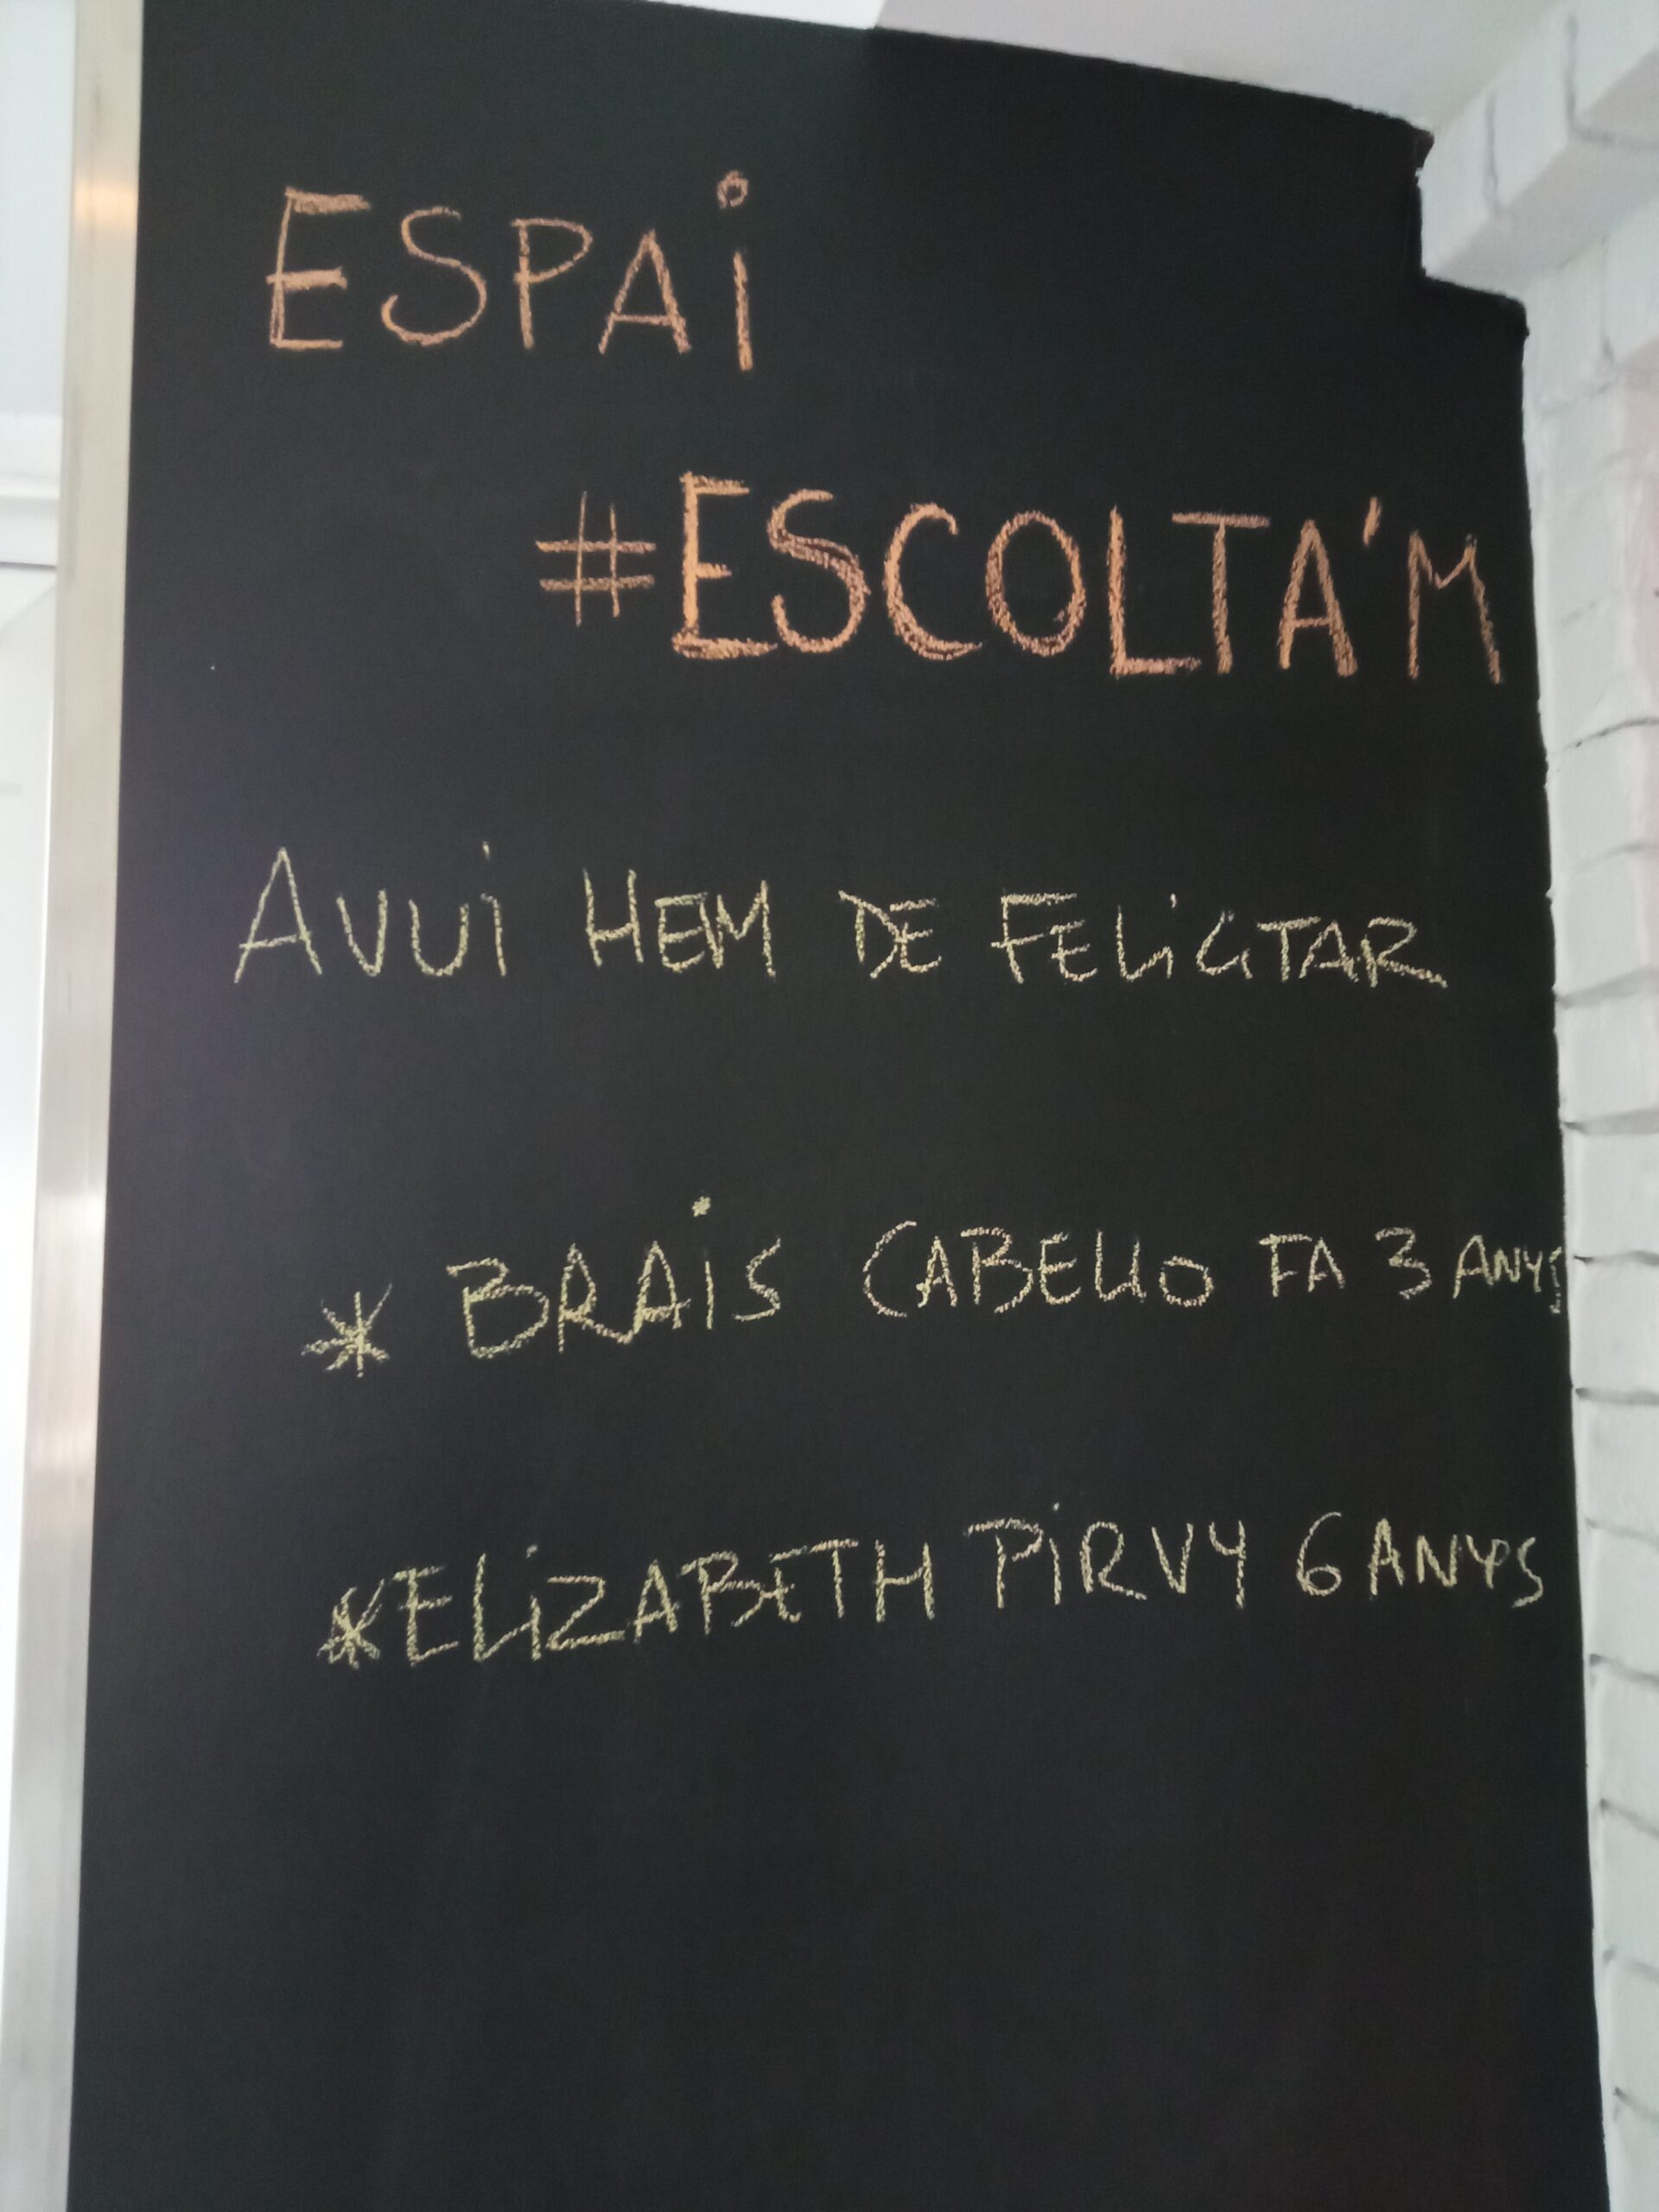 ESPAi
#ESCOLTA'M
AVUi HEM DE FELiCiTAR
* BRAiS CABELLO FA 3 ANYS
*ELiZABETH PiRVY 6 ANYS